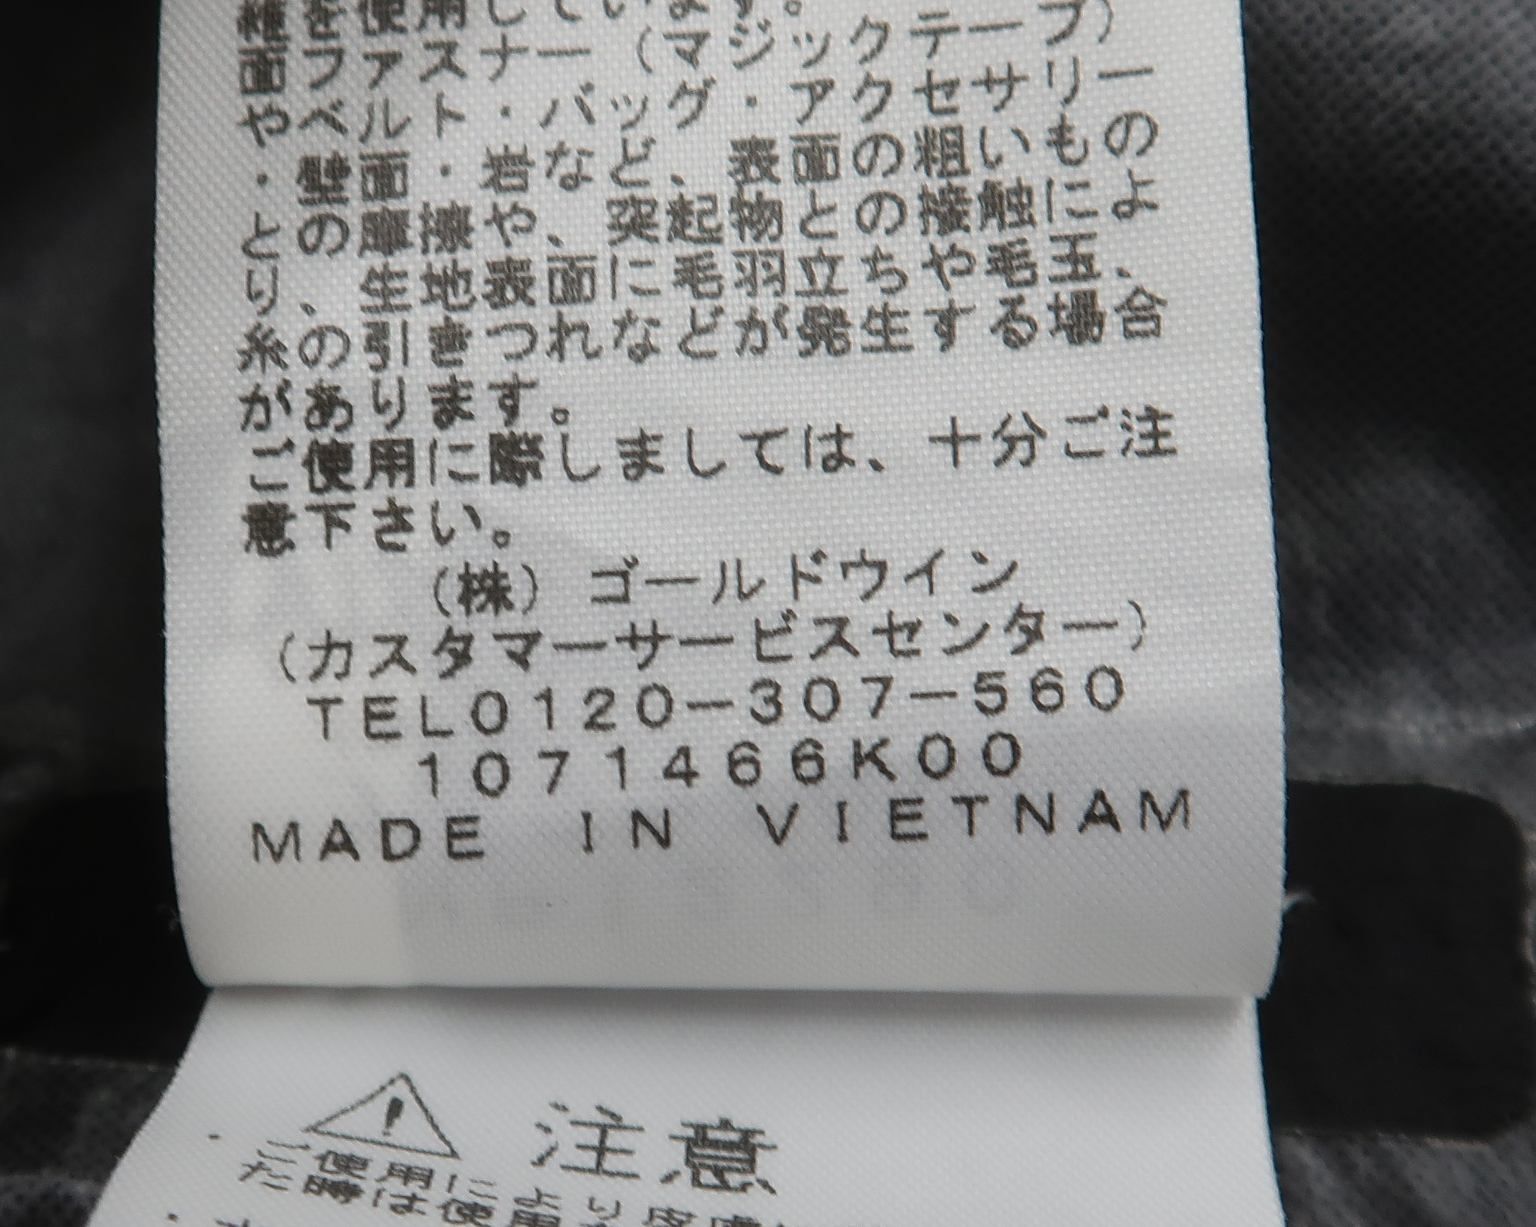 維を使用しています。
面ファスナー（マジックテープ）
やベルト・バッグ・アクセサリー
・壁面・岩など、表面の粗いもの
との摩擦や、突起物との接触によ
り、生地表面に毛羽立ちや毛玉、
糸の引きつれなどが発生する場合
があります。
ご使用に際しましては、十分ご注
意下さい。
（株）ゴールドウイン
（カスタマーサービスセンター）
TEL0120－307－560
1071466K00
MADE IN VIETNAM
注意
・ご使用により皮膚
た時は使用